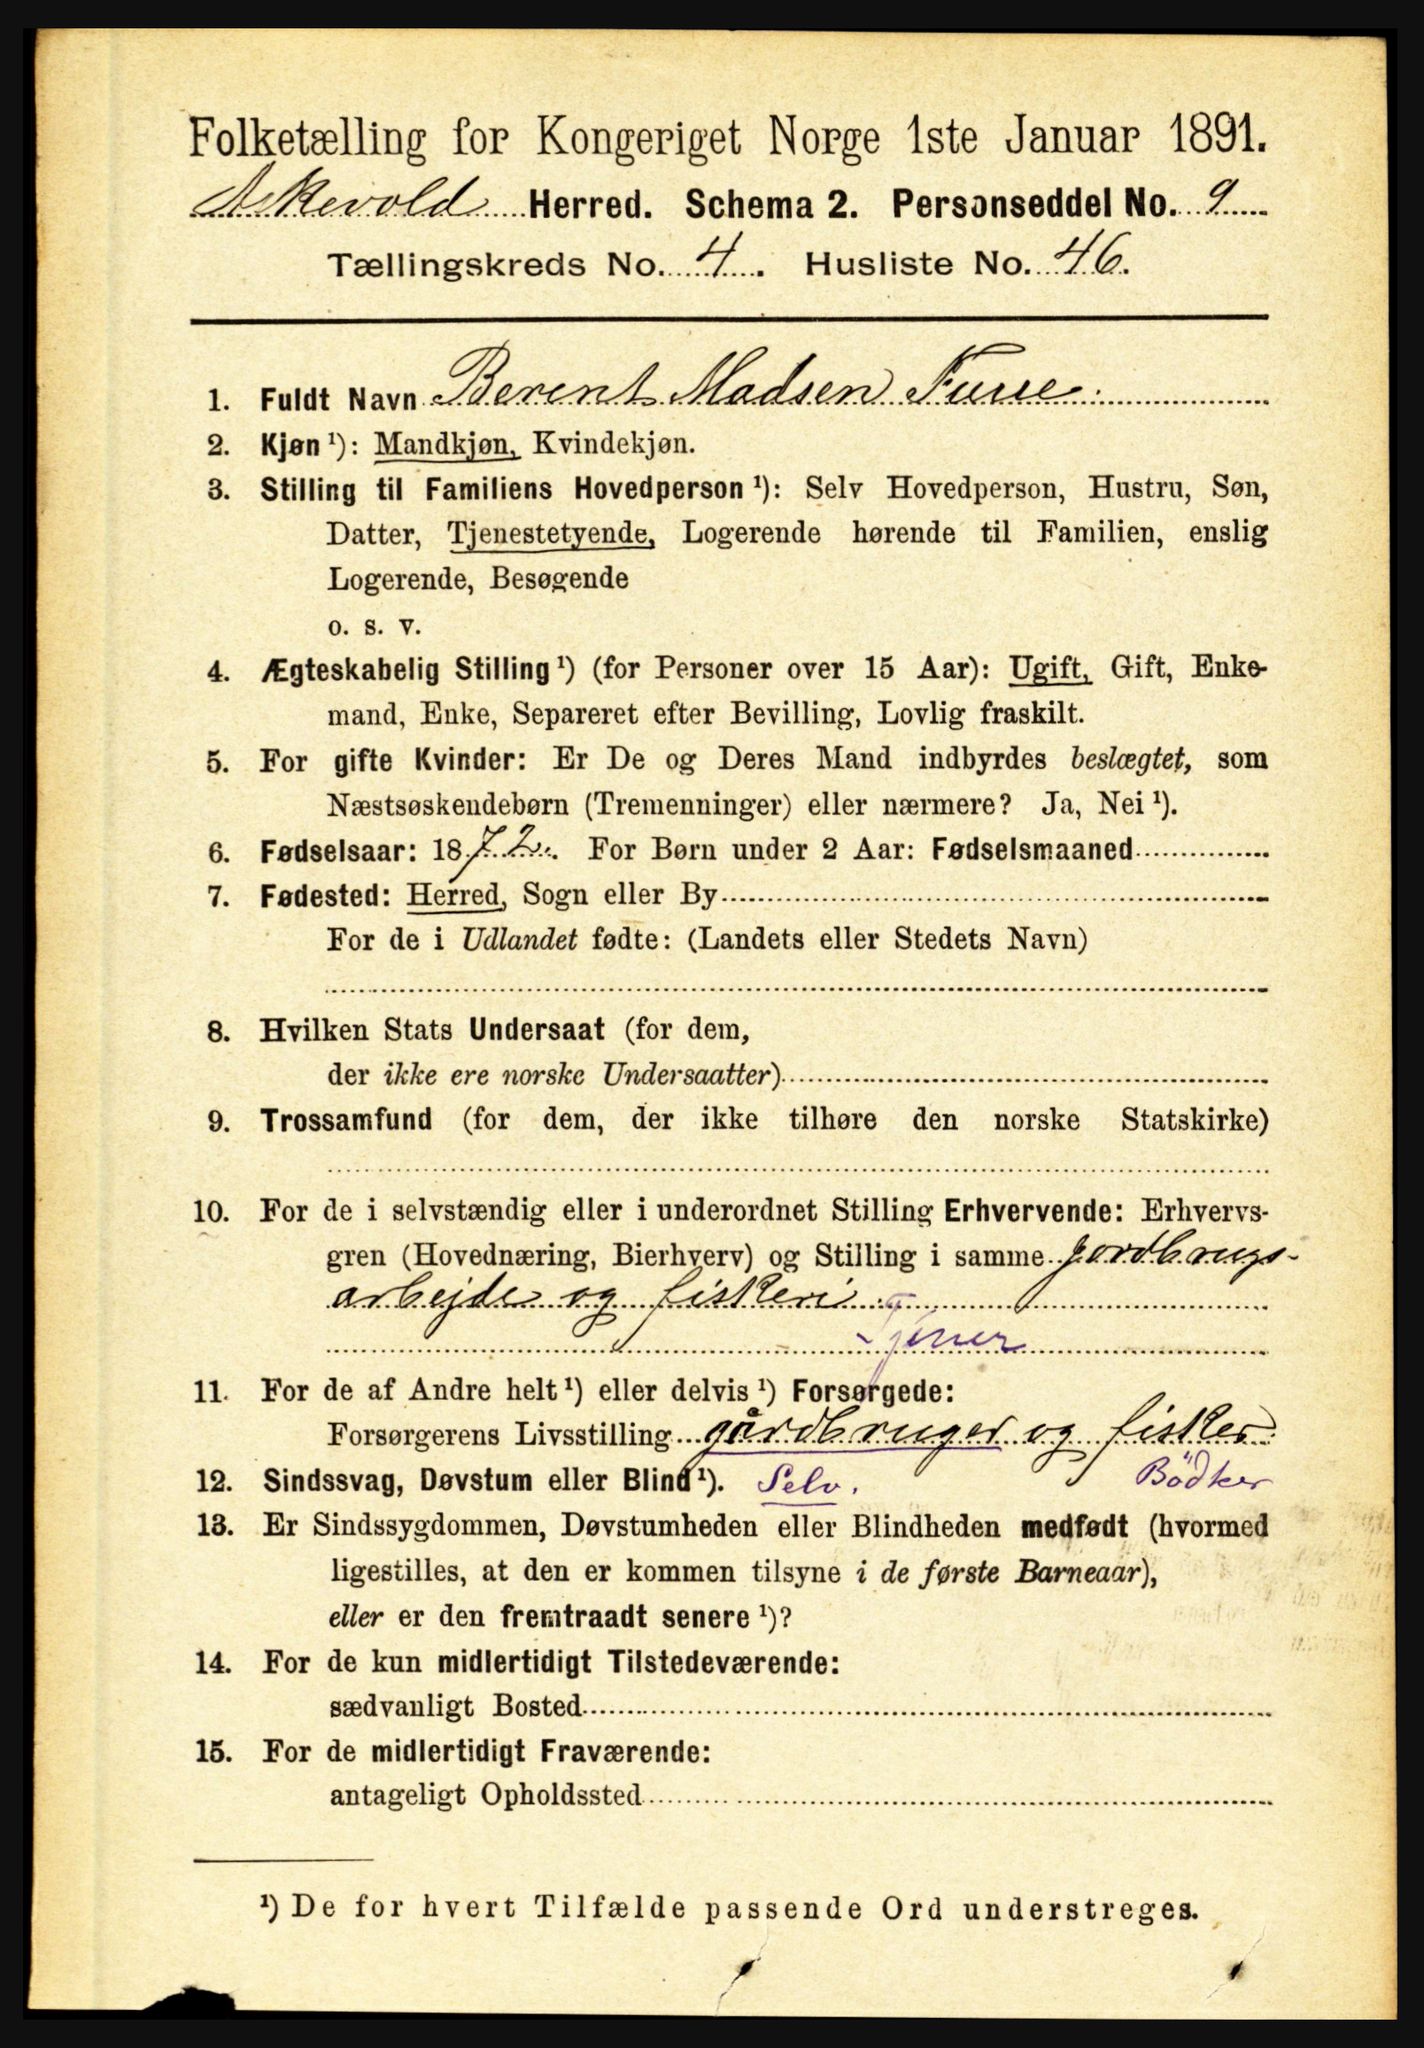 Folketælling for Kongeriget Norge 1ste Januar 1891.
Askevold Herred. Schema 2. Personseddel No. 9
Tællingskreds No. 4. Husliste No. 46.
1. Fuldt Navn Berent Madsen Furre
2. Kjøn ¹): Mandkjøn, Kvindekjøn.
3. Stilling til Familiens Hovedperson ¹): Selv Hovedperson, Hustru, Søn,
Datter, Tjenestetyende, Logerende hørende til Familien, enslig
Logerende, Besøgende
o. s. v.
4. Ægteskabelig Stilling ¹) (for Personer over 15 Aar): Ugift, Gift, Enke-
mand, Enke, Separeret efter Bevilling, Lovlig fraskilt.
5. For gifte Kvinder: Er De og Deres Mand indbyrdes beslægtet, som
Næstsøskendebørn (Tremenninger) eller nærmere? Ja, Nei ¹).
6. Fødselsaar: 1872. For Børn under 2 Aar: Fødselsmaaned
7. Fødested: Herred, Sogn eller By
For de i Udlandet fødte: (Landets eller Stedets Navn)
8. Hvilken Stats Undersaat (for dem,
der ikke ere norske Undersaatter)
9. Trossamfund (for dem, der ikke tilhøre den norske Statskirke)
10. For de i selvstændig eller i underordnet Stilling Erhvervende: Erhvervs-
gren (Hovednæring, Bierhverv) og Stilling i samme jordbrugs-
arbejde og fiskeri
Tjener
11. For de af Andre helt ¹) eller delvis ¹) Forsørgede:
Forsørgerens Livsstilling gårdbruger og fisker
12. Sindssvag, Døvstum eller Blind ¹). Selv. Bödker
13. Er Sindssygdommen, Døvstumheden eller Blindheden medfødt (hvormed
ligestilles, at den er kommen tilsyne i de første Barneaar),
eller er den fremtraadt senere ¹)?
14. For de kun midlertidigt Tilstedeværende:
sædvanligt Bosted
15. For de midlertidigt Fraværende:
antageligt Opholdssted
¹) De for hvert Tilfælde passende Ord understreges.